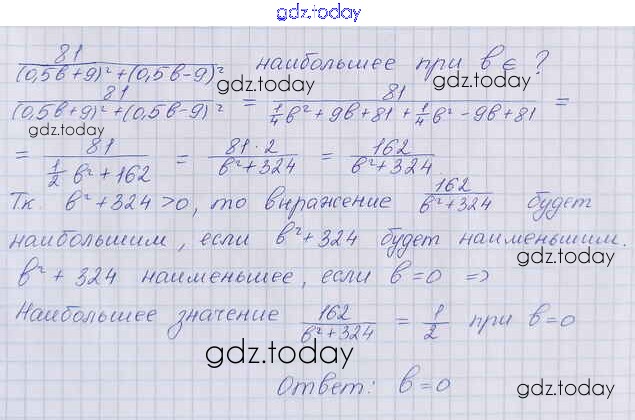 gdz.today
81/((0,5в+9)²+(0,5в-9)²) наибольшее при в є ?
gdz.today
81/((0,5в+9)²+(0,5в-9)²) = 81/(1/4в²+9в+81+1/4в²-9в+81) =
gdz.today
= 81/(1/2в²+162) = 81·2/(в²+324) = 162/(в²+324)
gdz.today
Тк. в²+324>0, то выражение 162/(в²+324) будет
наибольшим, если в²+324 будет наименьшим.
gdz.today
в²+324 наименьшее, если в=0 =>
Наибольшее значение 162/(в²+324) = 1/2 при в=0
gdz.today
Ответ: в=0
gdz.today